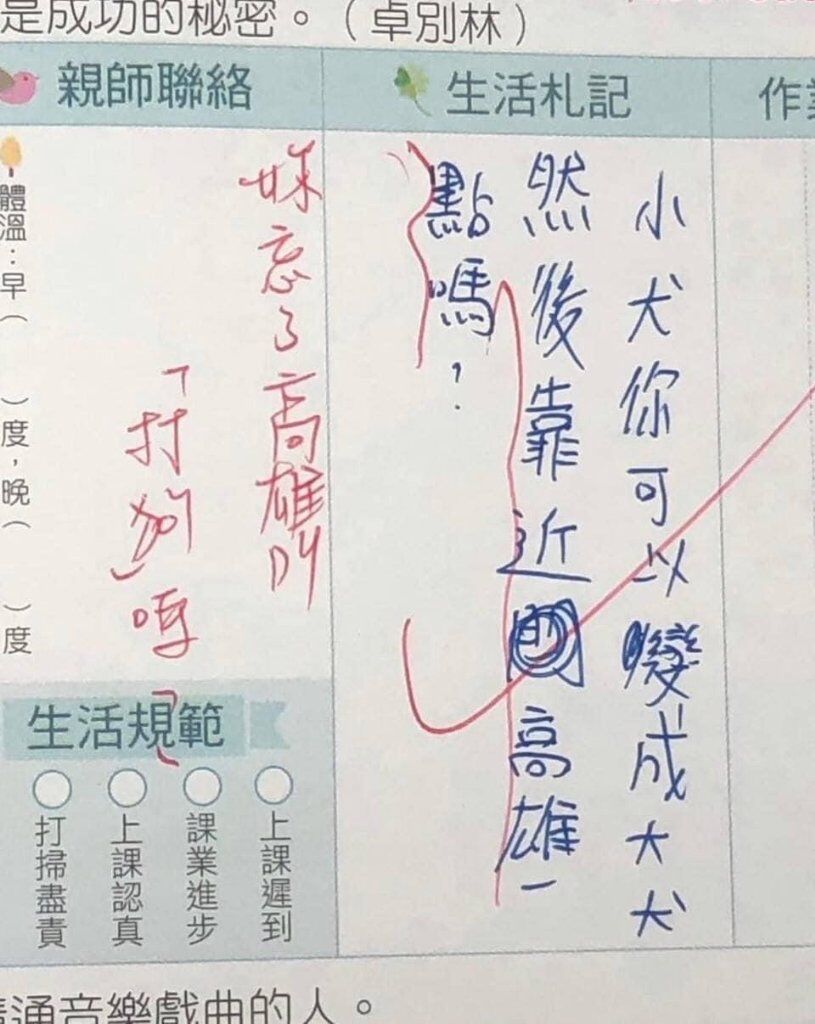 是成功的秘密。（卓別林）
親師聯絡
生活札記
作
小犬你可以變成大犬
然後靠近高雄一
點嗎？
妳忘了高雄叫
「打狗」嗎
體溫：早（　）度，晚（　）度
生活規範
上課遲到
課業進步
上課認真
打掃盡責
通音樂戲曲的人。